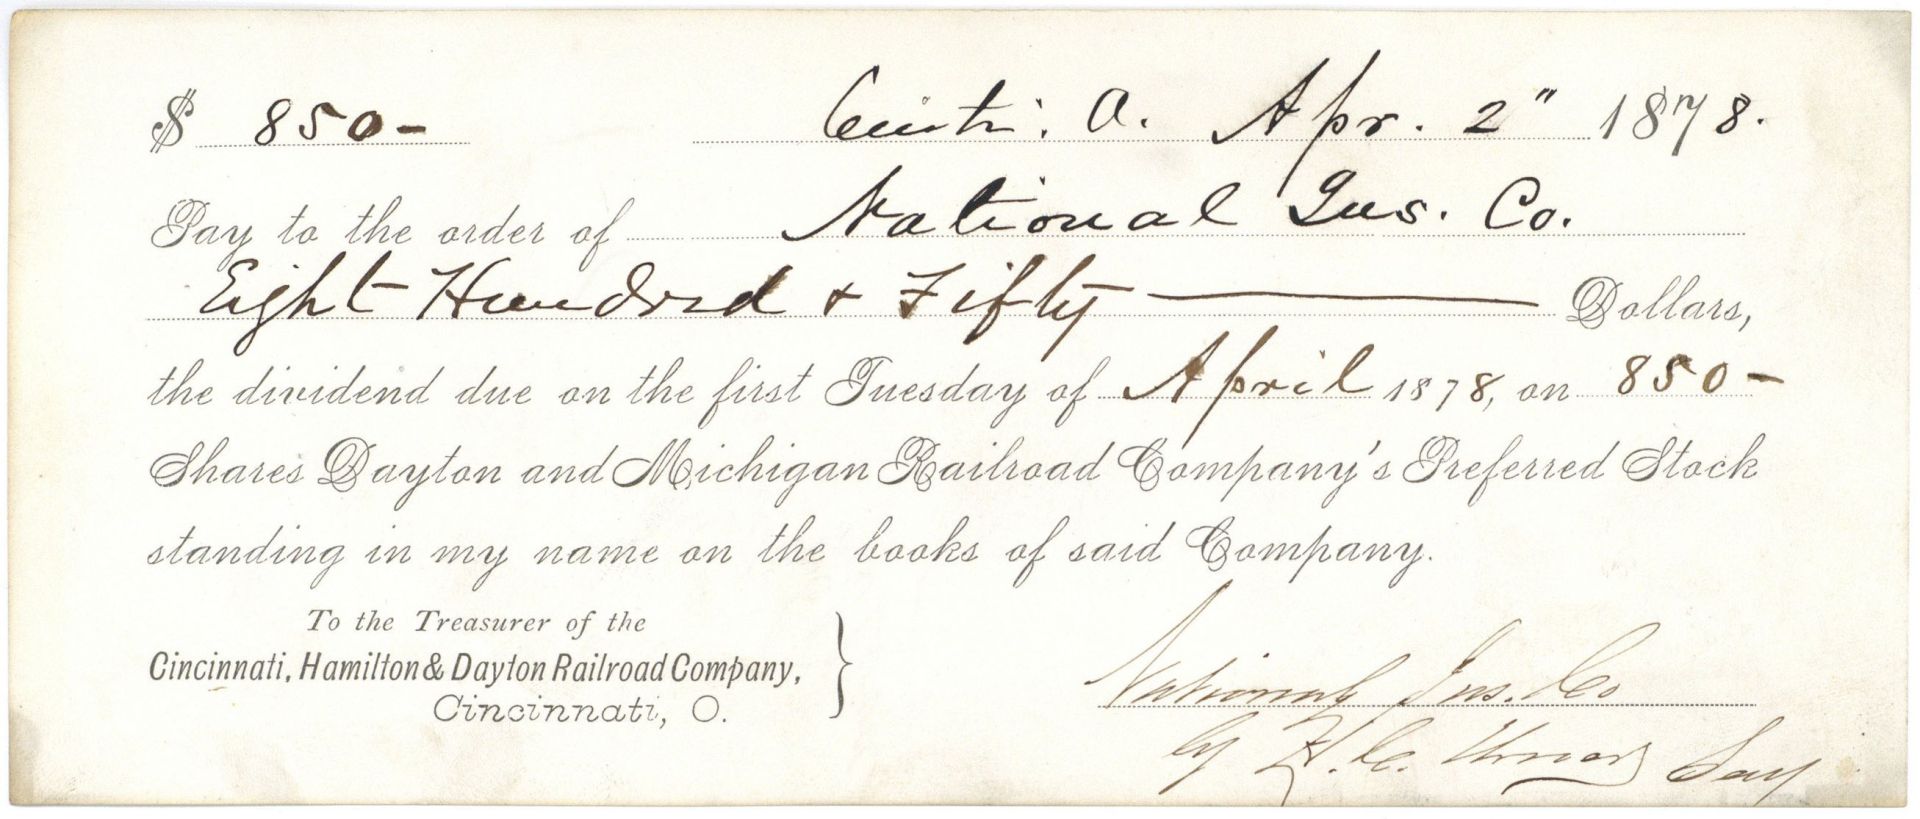 $ 850 - Cinti. O. Apr. 2" 1878.
Pay to the order of National Ins. Co.
Eight Hundred & Fifty Dollars,
the dividend due on the first Tuesday of April 1878, on 850 -
Shares Dayton and Michigan Railroad Company's Preferred Stock
standing in my name on the books of said Company.
To the Treasurer of the
Cincinnati, Hamilton & Dayton Railroad Company,
Cincinnati, O.
National Ins. Co
by H. C. Secy